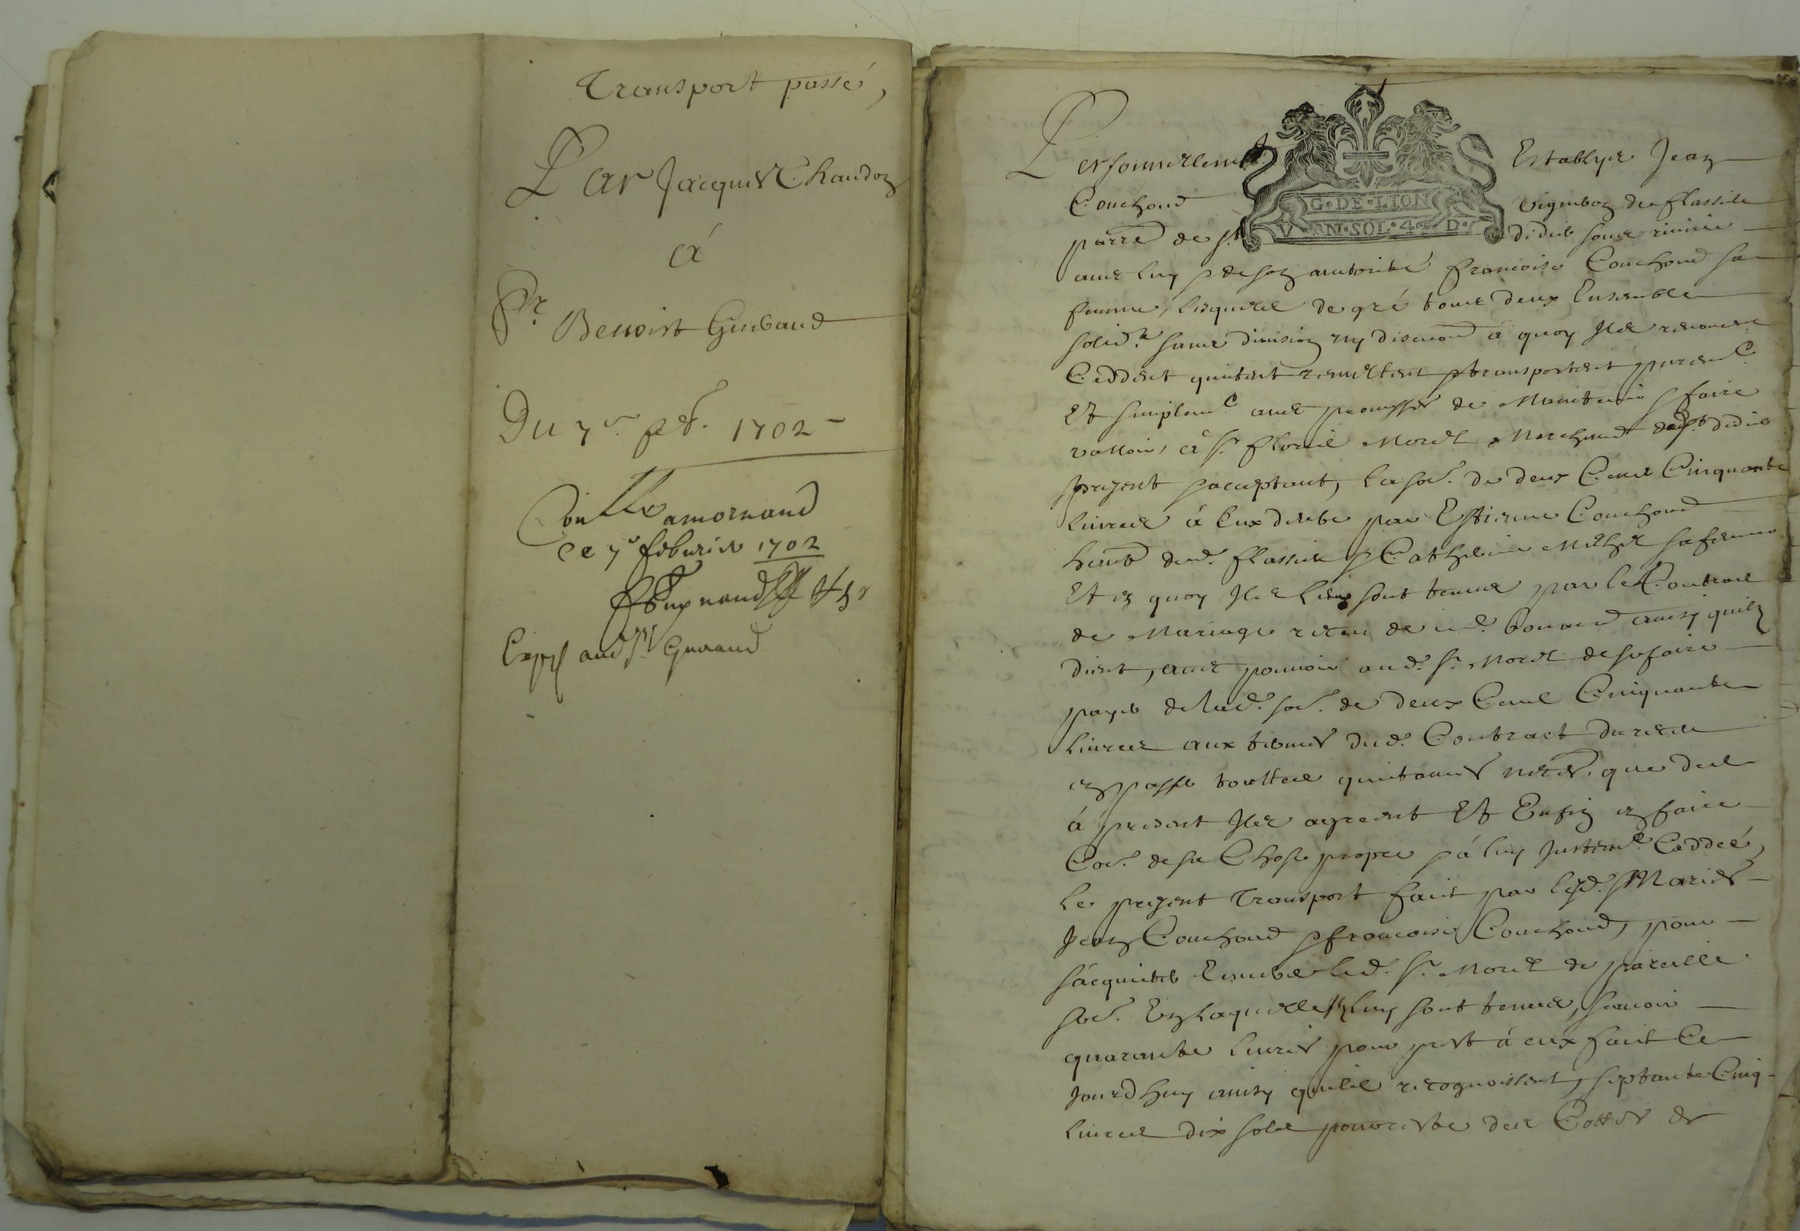 Transport passé,
Par Jacques Chaudon
à
Sr
Benoist Guibaud
Du 7e feb. 1702
Con
ce 7e febvrier 1702
Exp aud Sr
Personnellemt Establys Jean
G·DE·LION
V· AN·SOL·4·D·
Couchoud vigneron de flassieu
parre de St didier sous riviere
avec luy & de son authorité francoise Couchoud sa
femme, lesquels de gré tous deux Ensemble
solidt sans division ny discuon à quoy Ils renoncent
Ceddent quittent remettent & transportent puremt
Et simplemt avec promesse de Maintenir & faire
valloir, à Sr fleurie Morel Marchand dudt St didier
present & acceptant, la so.e de deux Cens Cinquante
Livres à Eux deube par Estienne Couchoud
habt dud. flassieu & Catherine Michel sa femme
Et en quoy Ils leurs sont tenus par le Contract
de Mariage receu de me bonard ainsy quils
disent, avec pouvoir aud. Sr Morel de se faire
payer de lad. so.e de deux Cens Cinquante
Livres aux termes dud. Contract du reste
en passer touttes quittances neces. que des
à present Ils agreent Et Enfin en faire
Coe. de sa Chose propre & à luy Justemt Ceddeé,
Le present Transport fait par lesd. Mariés
Jean Couchoud & francoise Couchoud, pour
s'acquiter Envers led. Sr Morel de pareille
soe. En laquelle Ils luy sont tenus, scavoir
quarante livres pour prest à eux fait Ce
Jourdhuy ainsy quils recognoissent, septante Cinq
Livres dix sols pour reste des Cottes de